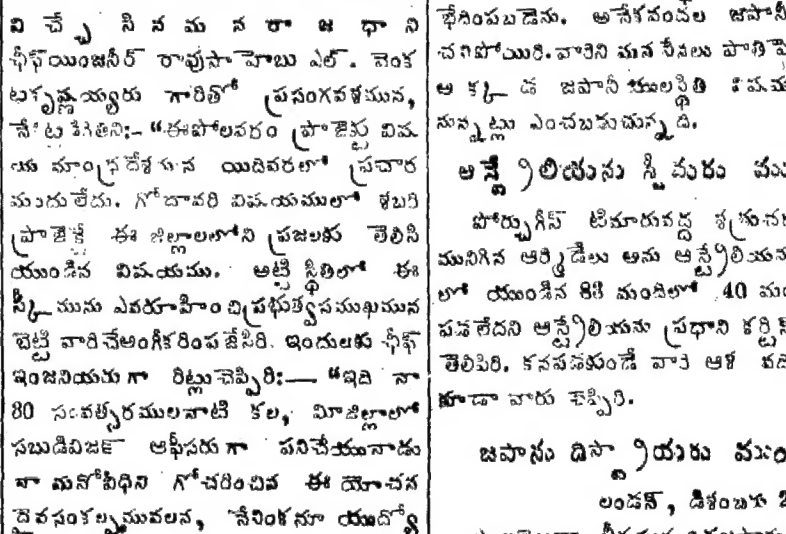 విచ్చేసినమన రాజధాని
ఛీఫ్‌యింజనీర్ రావుసాహెబు ఎల్. వెంక
టకృష్ణయ్యరు గారితో ప్రసంగవశమున,
"ఈపోలవరం ప్రాజెక్టు విష
యమాంధ్రదేశమున యిదివరలో ప్రచార
మందులేదు. గోదావరి విషయములో శబరి
ప్రాజెక్టే ఈ జిల్లాలలోని ప్రజలకు తెలిసి
యుండిన విషయము. అట్టి స్థితిలో ఈ
స్కీమును ఎవరూహించి ప్రభుత్వసముఖమున
బెట్టి వారిచేఅంగీకరింపజేసిరి. ఇందులకు ఛీఫ్
ఇంజనియరుగా రిట్లుచెప్పిరి:— "ఇది నా
30 సంవత్సరములనాటి కల, మీజిల్లాలో
సబుడివిజన్ ఆఫీసరుగా పనిచేయునాడు
నా మనోవీధిని గోచరించిన ఈ యోచన
దైవసంకల్పమువలన, నేనింకనూ యుద్యో
భేదింపబడెను. అనేకవందల జపానీ
చనిపోయిరి. వారిని మన సేనలు
అక్కడ జపానీయులస్థితి విషమ
మన్నట్లు ఎంచబడుచున్నది.
ఆస్ట్రేలియను స్టీమరు
పోర్చుగీస్ టిమారువద్ద
మునిగిన ఆర్మిడేలు అను
లో యుండిన మందిలో 40
పడలేదని ఆస్ట్రేలియను ప్రధాని
తెలిపిరి. కనపడకుండే వారి ఆశ
కూడా వారు చెప్పిరి.
జపాను డిస్ట్రాయరు
లండన్, డిశంబరు